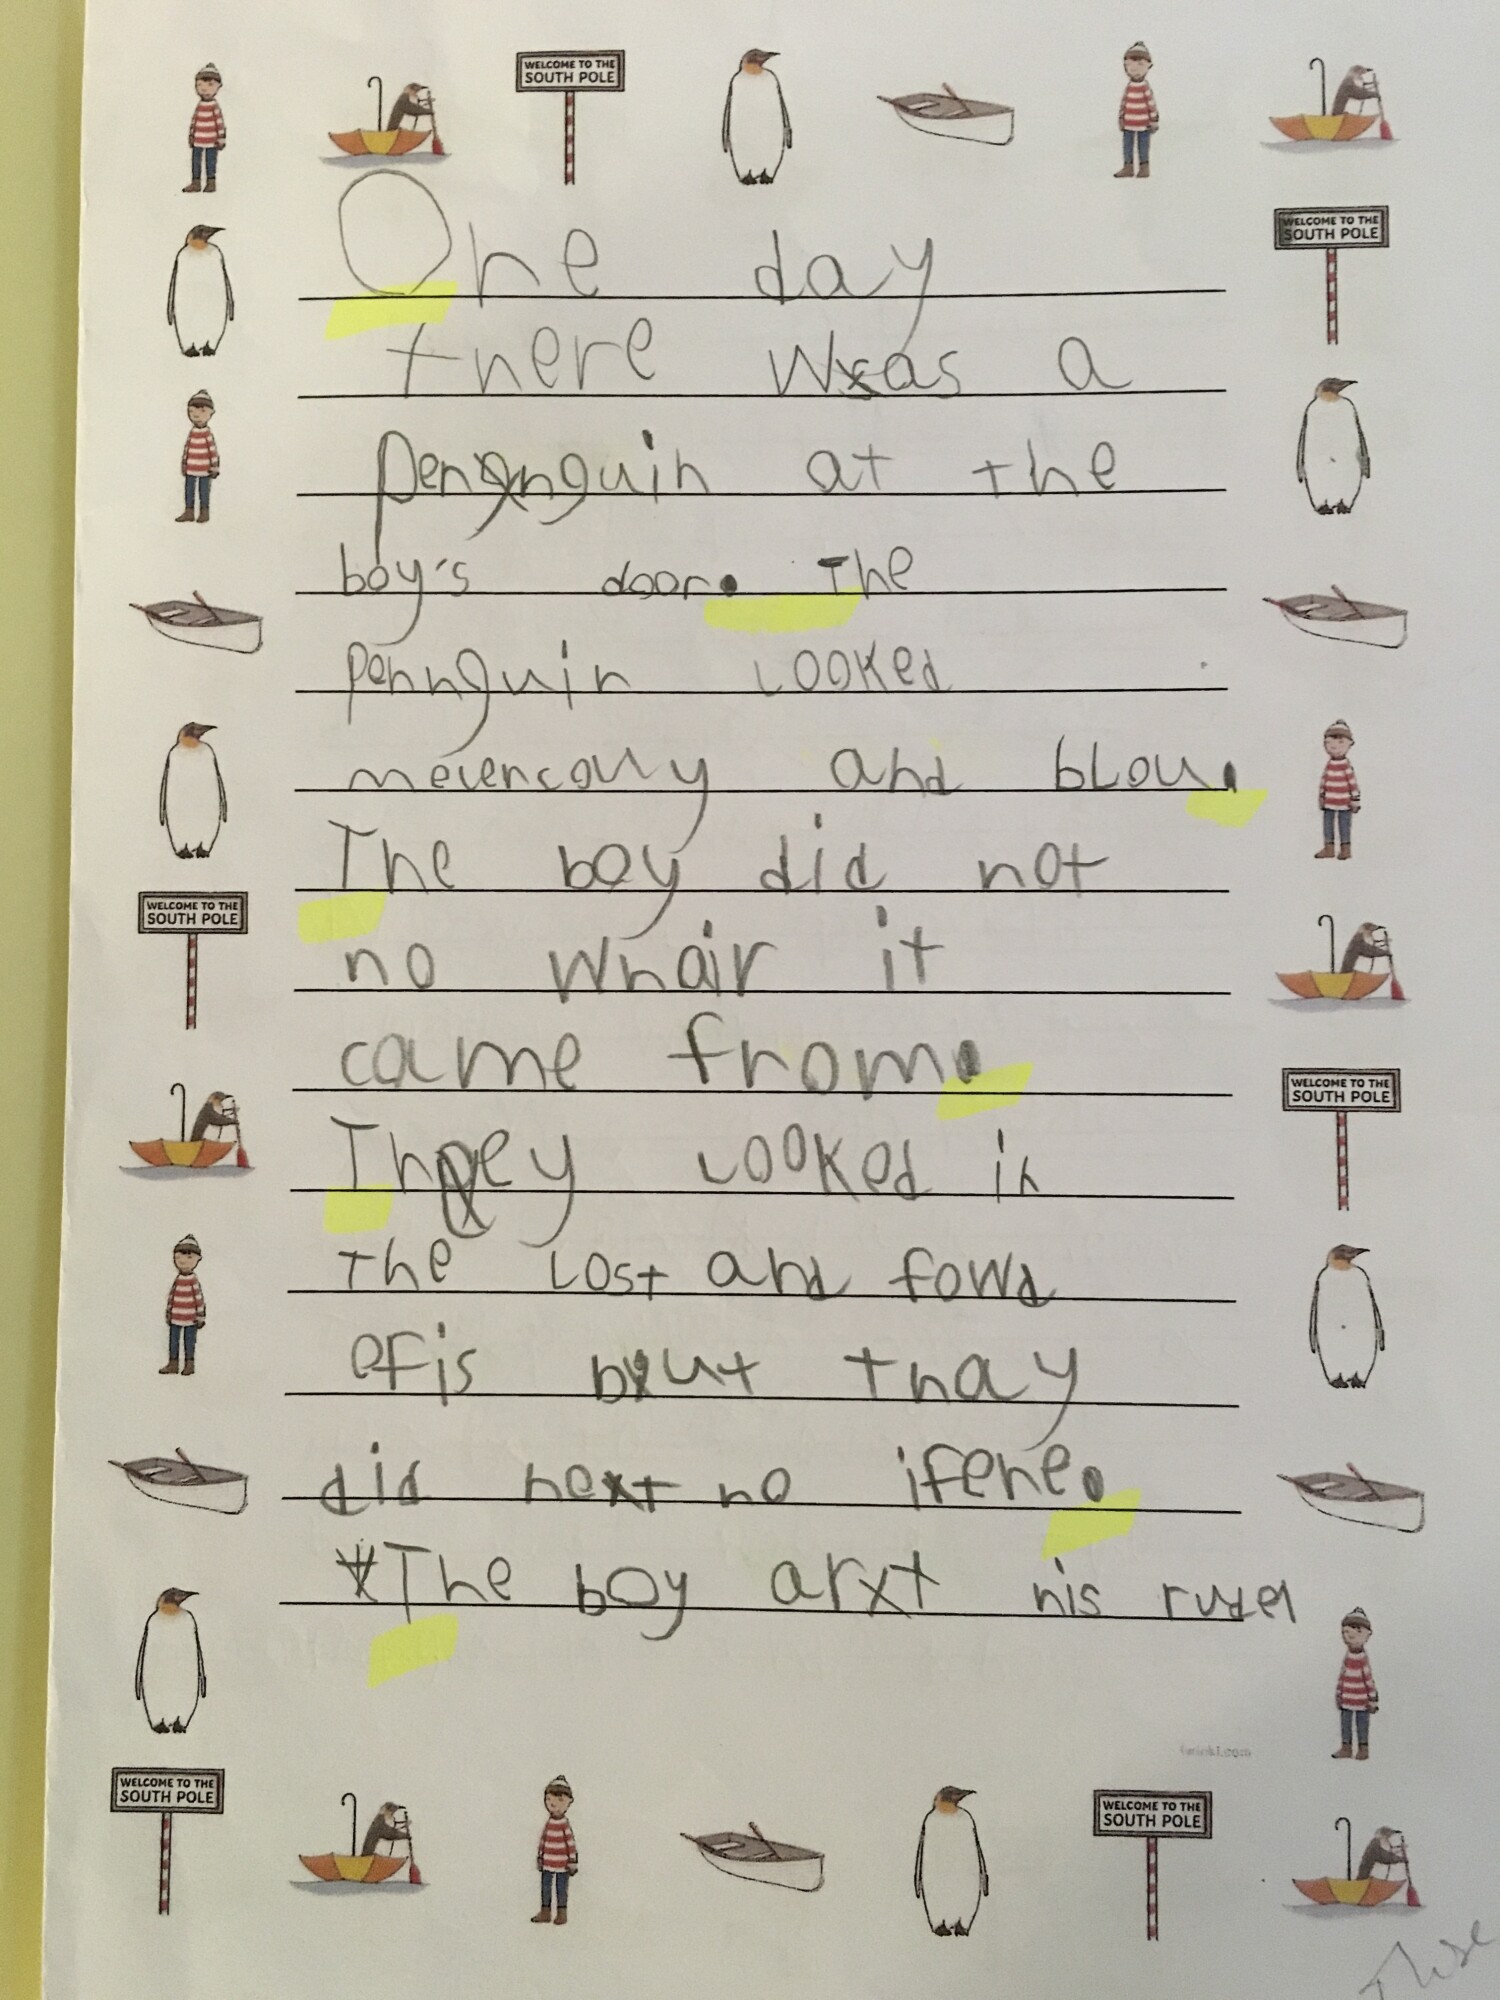 WELCOME TO THE
SOUTH POLE
One day
WELCOME TO THE
SOUTH POLE
there was a
penguin at the
boy's door. The
pennguin looked
melencolly and blou.
The boy did not
WELCOME TO THE
SOUTH POLE
no whair it
came from.
WELCOME TO THE
SOUTH POLE
They looked in
the Lost and fowd
efis but thay
did not no ifene.
The boy arxt his
twinkl.com
WELCOME TO THE
SOUTH POLE
WELCOME TO THE
SOUTH POLE